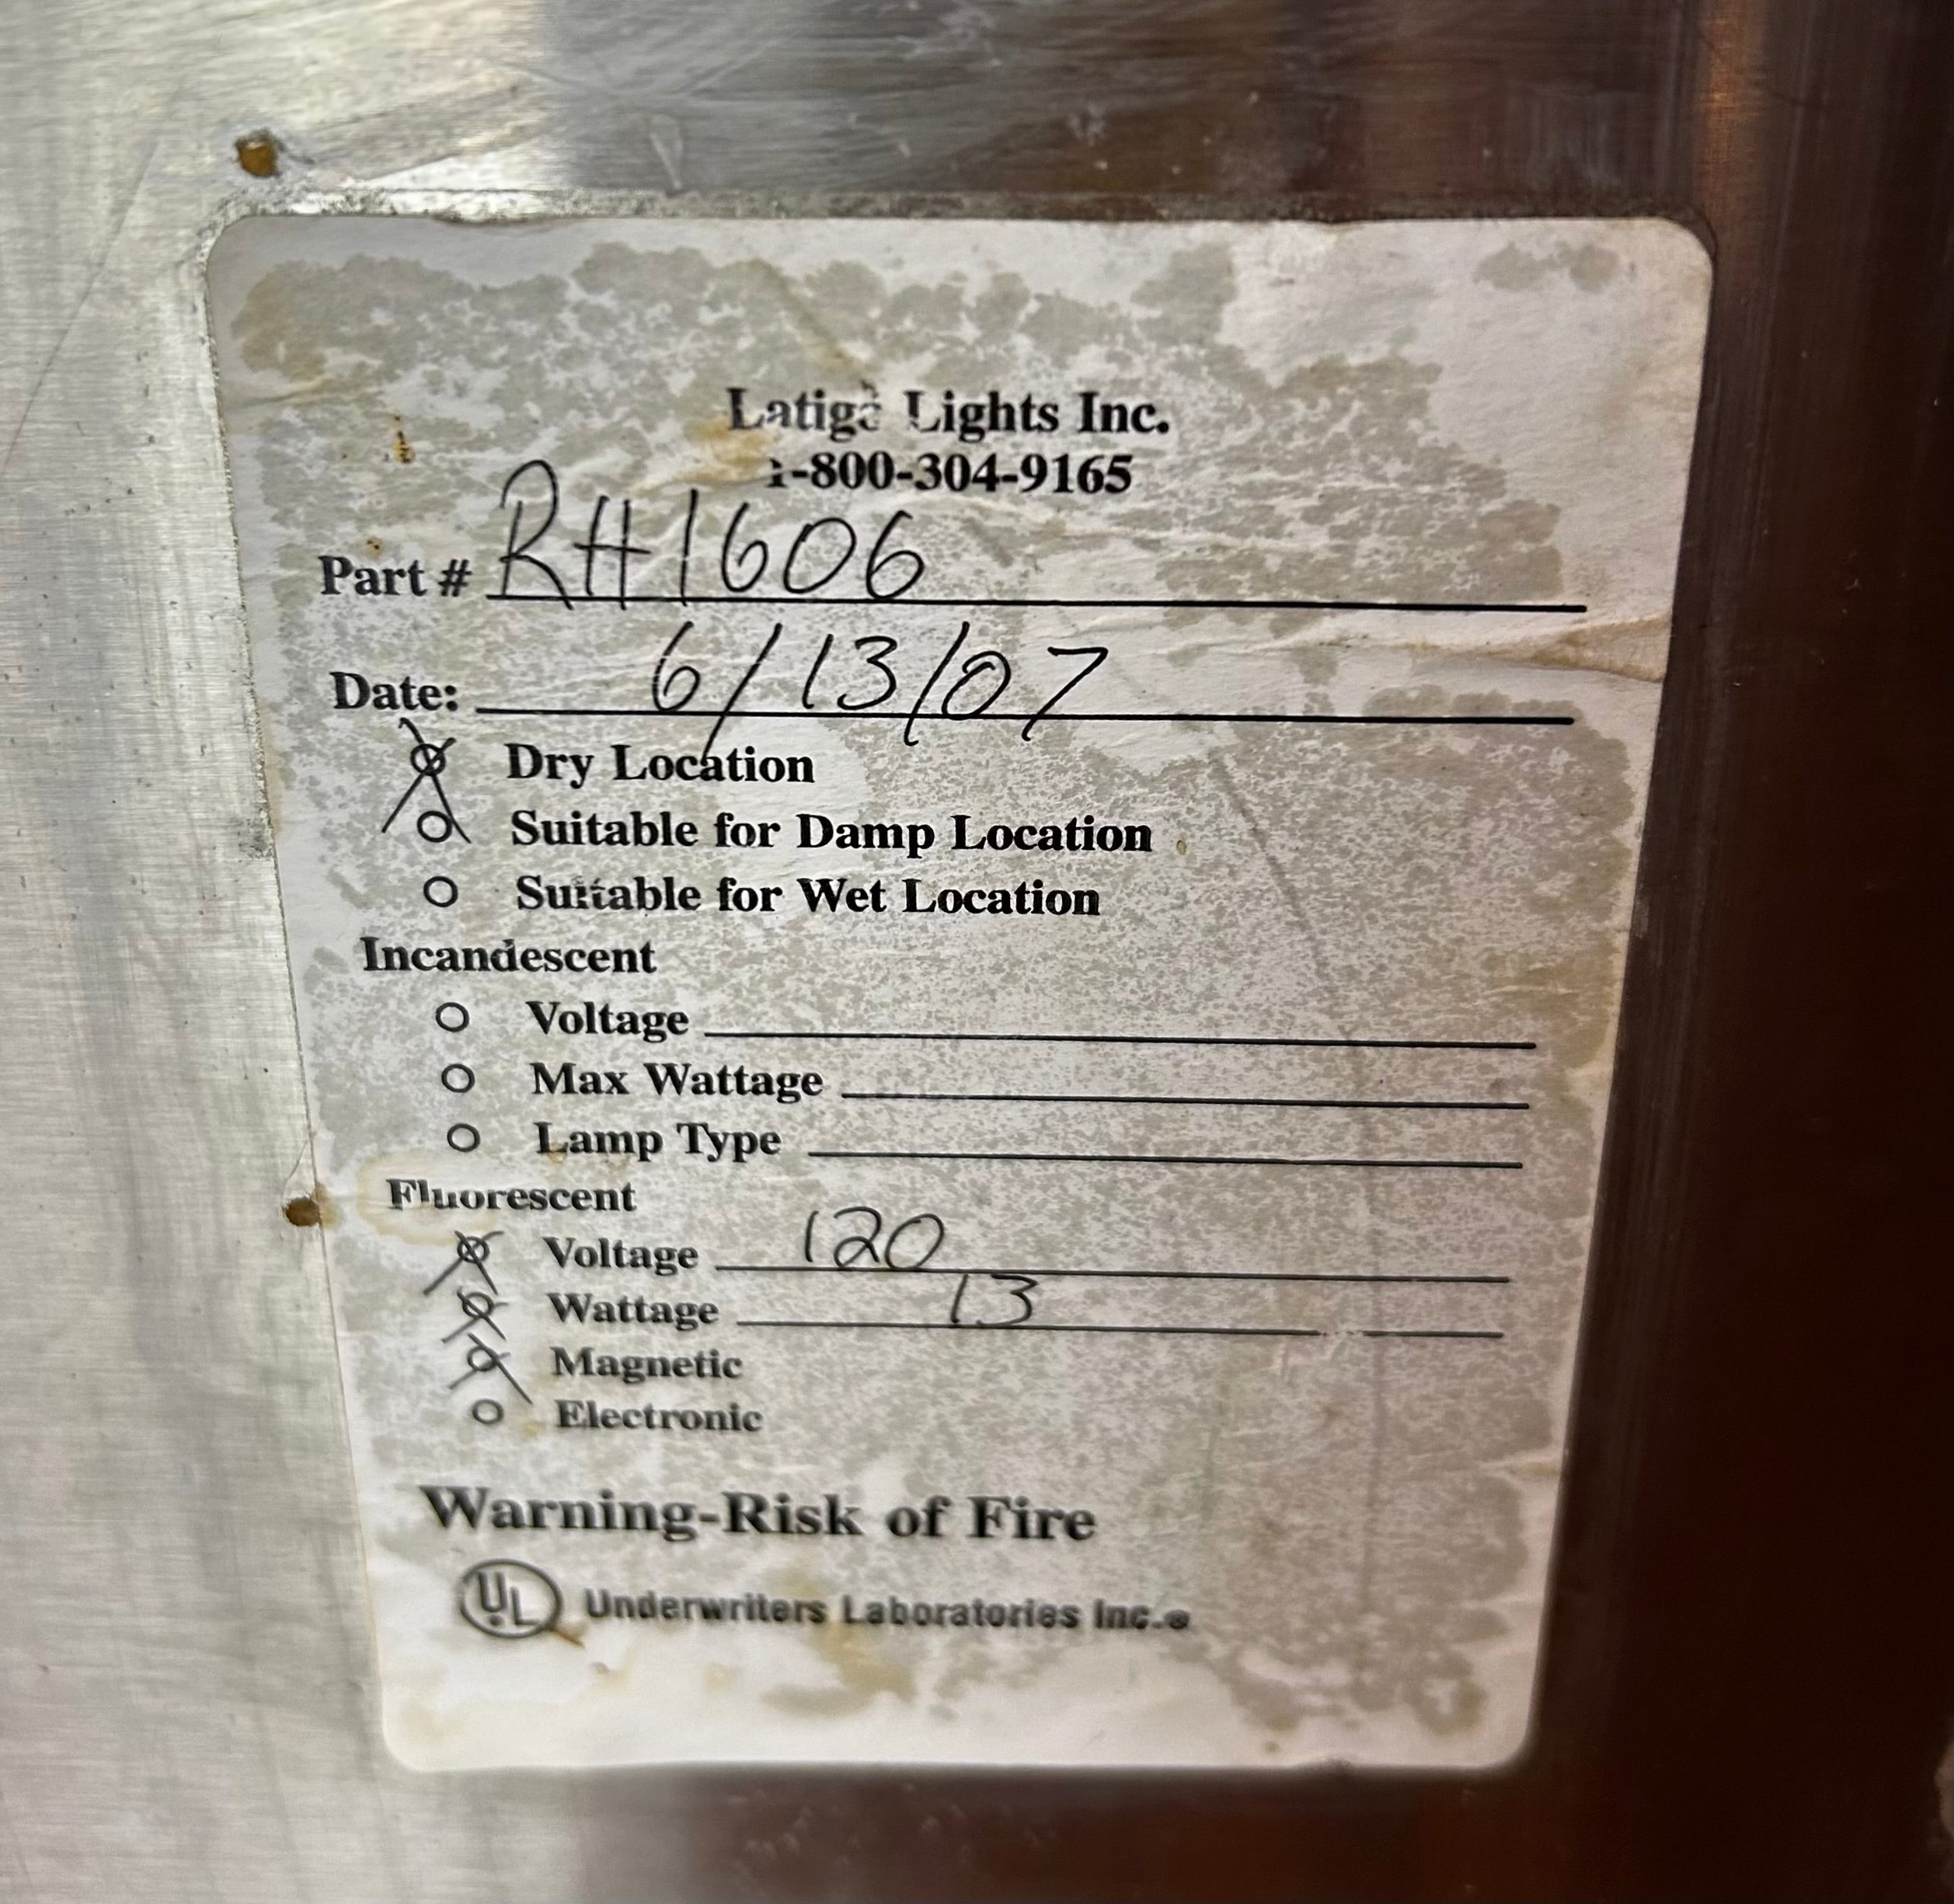 Latigo Lights Inc.
1-800-304-9165
Part # RH1606
Date: 6/13/07
Dry Location
Suitable for Damp Location
Suitable for Wet Location
Incandescent
Voltage
Max Wattage
Lamp Type
Fluorescent
Voltage 120
Wattage 13
Magnetic
Electronic
Warning-Risk of Fire
UL Underwriters Laboratories Inc.®